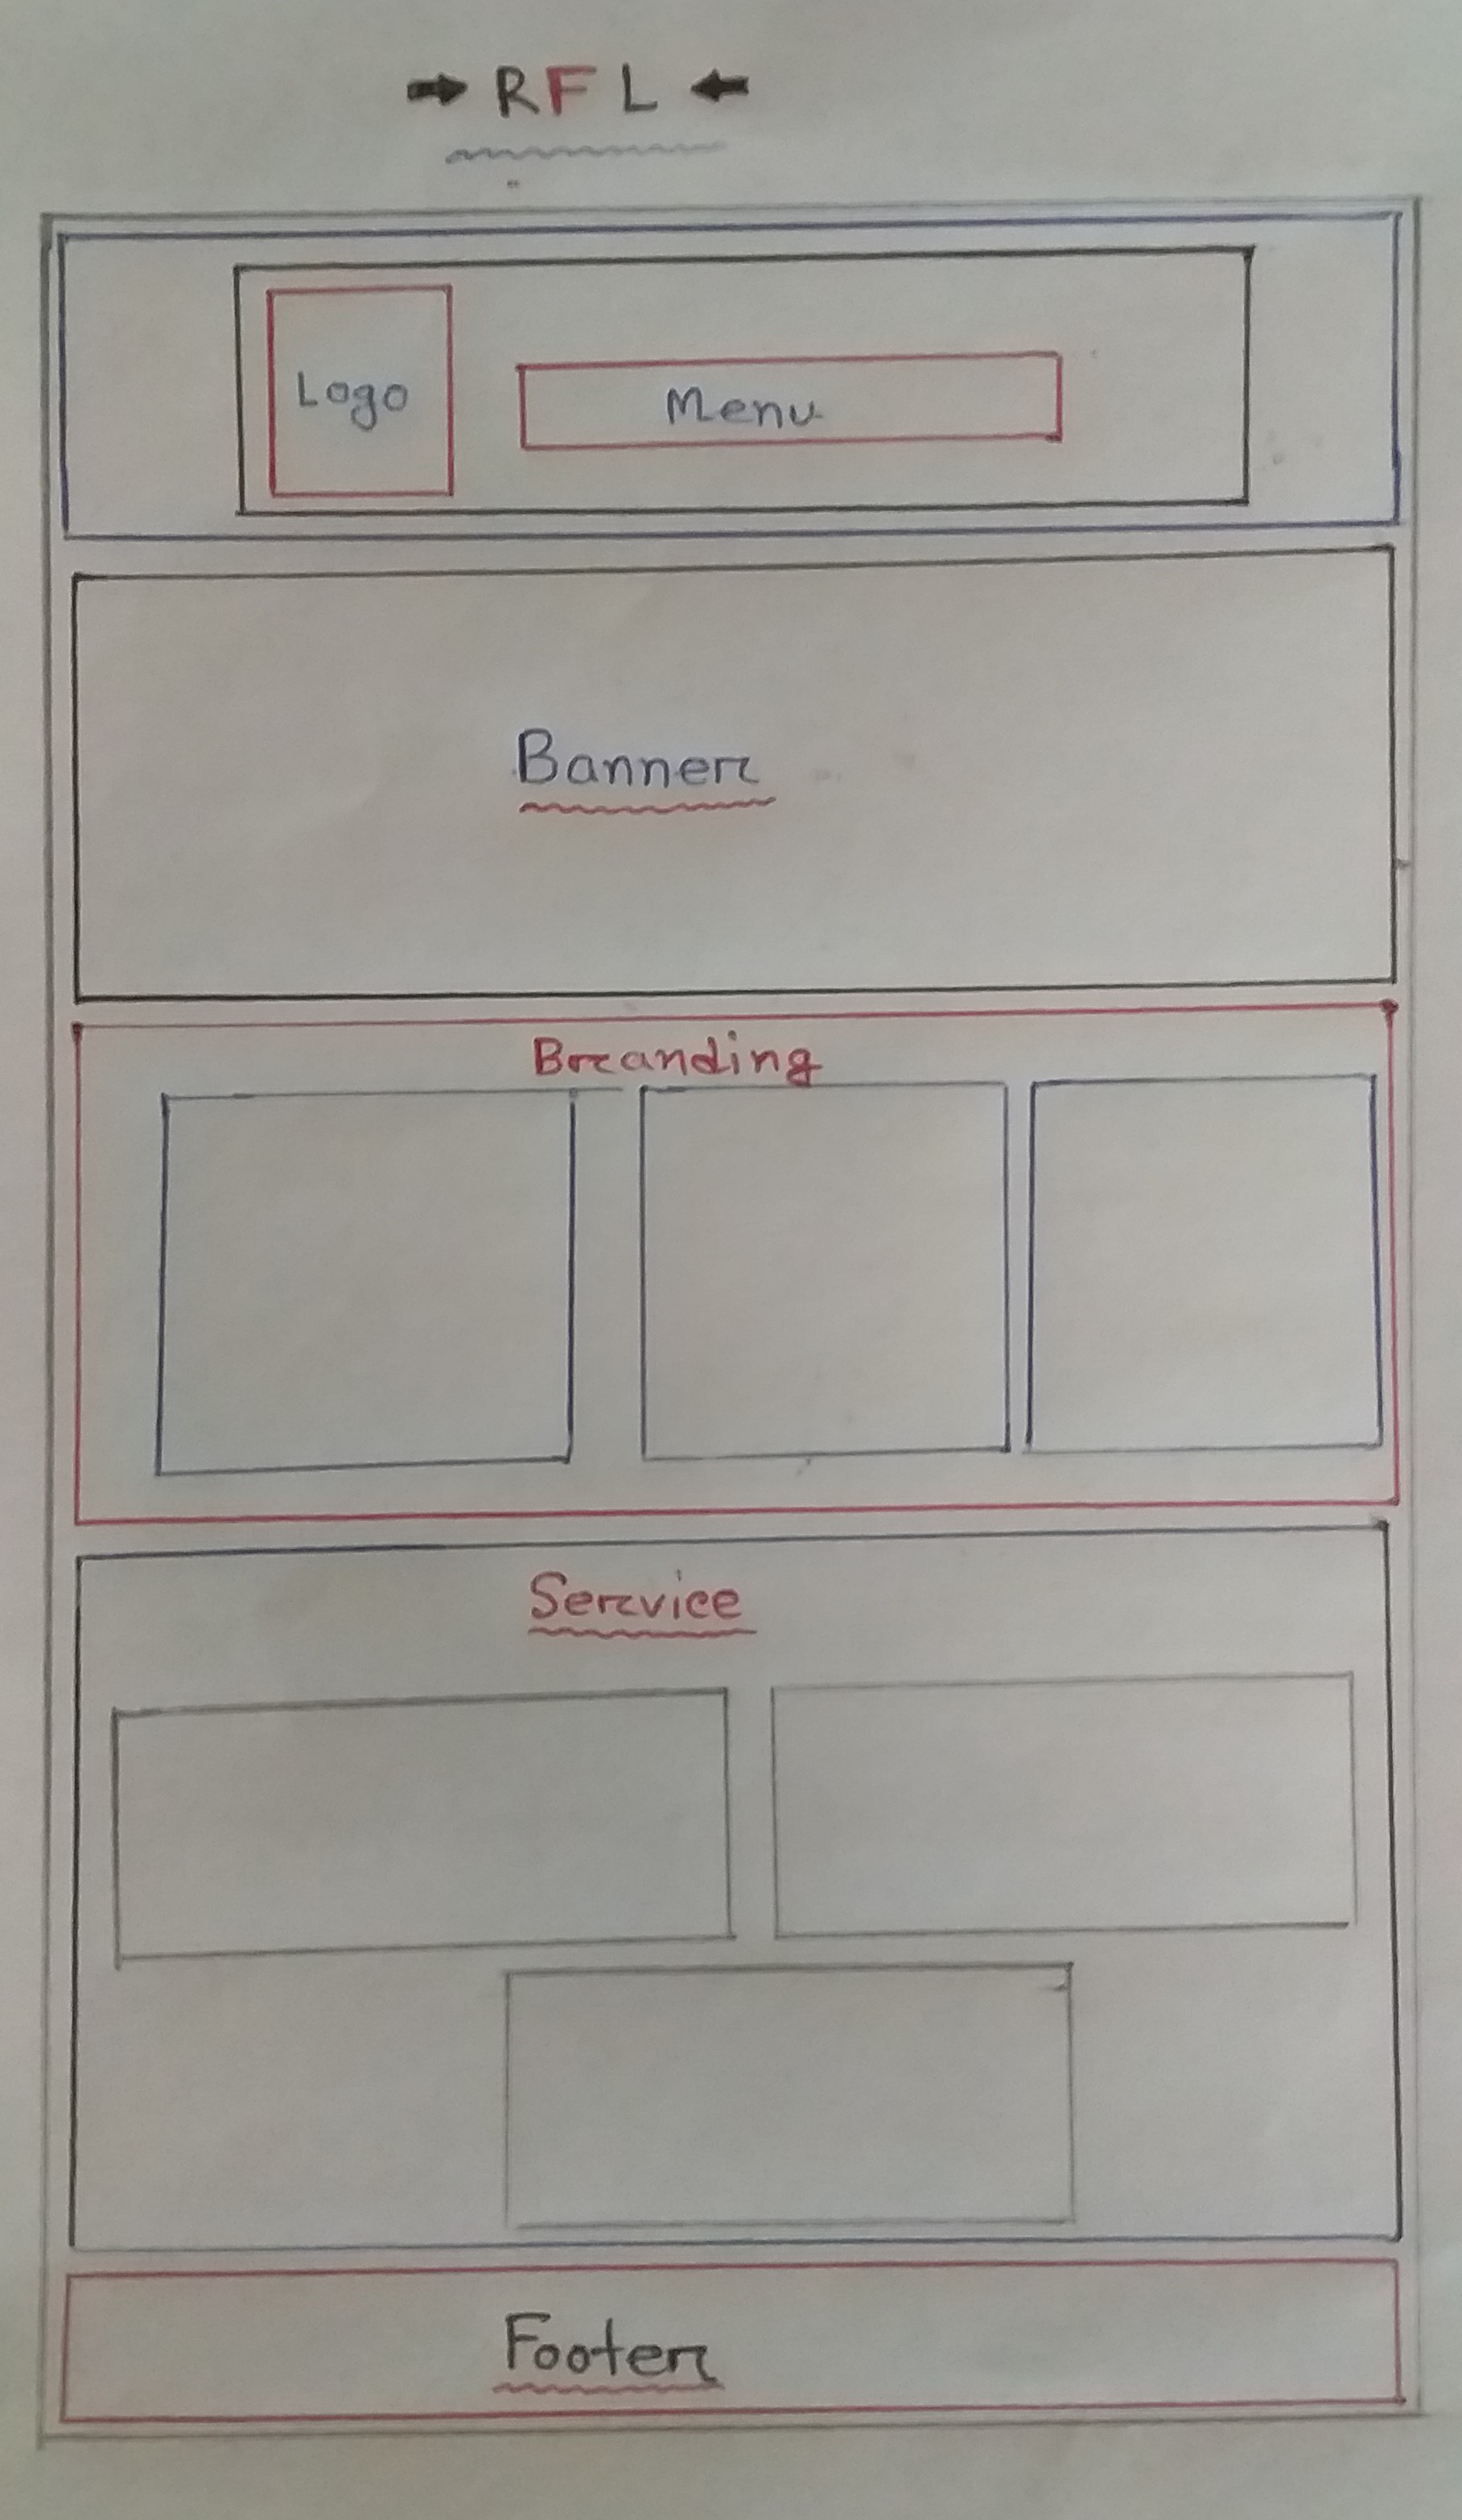 RFL
Logo
Menu
Banner
Branding
Service
Footer